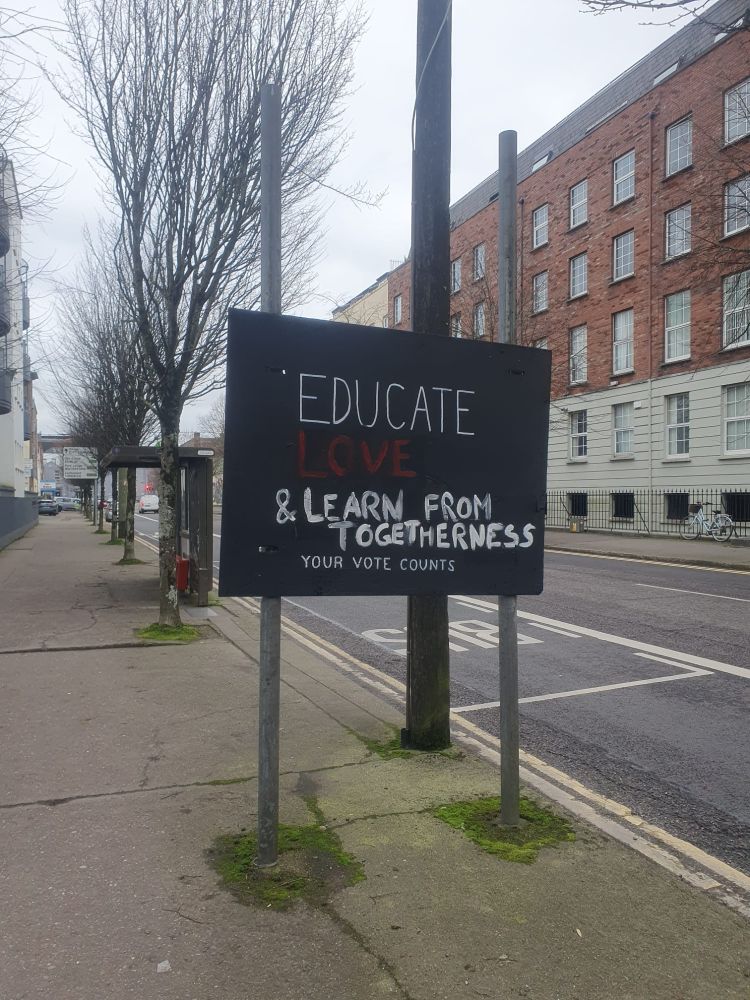 EDUCATE
LOVE
& LEARN FROM
TOGETHERNESS
YOUR VOTE COUNTS
BUS